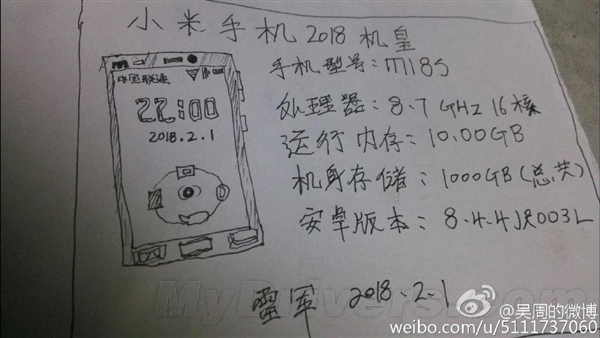 小米手机2018机皇
手机型号：MI8S
中国联通
22:00
2018.2.1
处理器：8.7GHz 16核
运行内存：10.00GB
机身存储：1000GB(总共)
安卓版本：8.4.4JR003L
雷军 2018.2.1
MyDrivers.com
@吴周的微博
weibo.com/u/5111737060